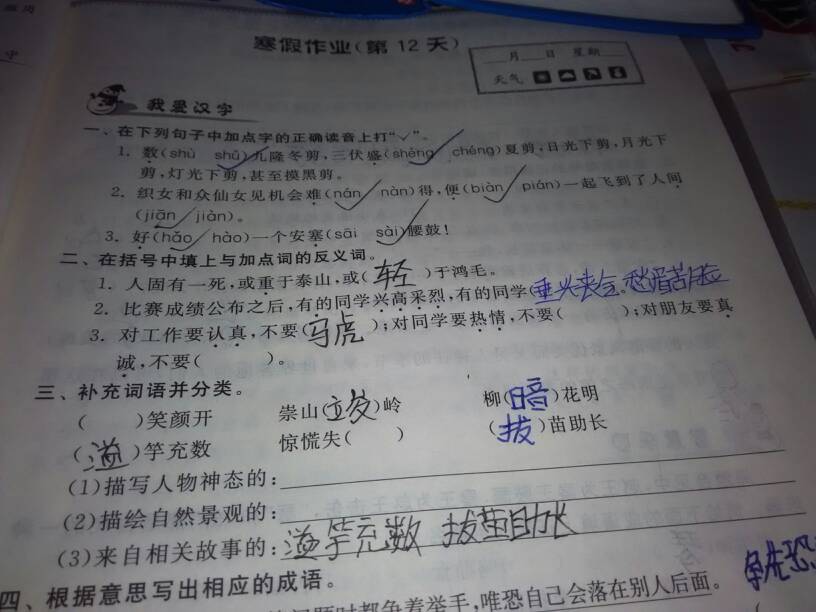 寒假作业(第 12 天)
月 日 星期
天气
我爱汉字
一、在下列句子中加点字的正确读音上打“✓”。
1. 数(shù shǔ)九隆冬剪,三伏盛(shèng chéng)夏剪,日光下剪,月光下
剪,灯光下剪,甚至摸黑剪。
2. 织女和众仙女见机会难(nán nàn)得,便(biàn pián)一起飞到了人间
(jiān jiàn)。
3. 好(hǎo hào)一个安塞(sāi sài)腰鼓!
二、在括号中填上与加点词的反义词。
1. 人固有一死,或重于泰山,或(轻)于鸿毛。
2. 比赛成绩公布之后,有的同学兴高采烈,有的同学(垂头丧气。愁眉苦脸
3. 对工作要认真,不要(马虎);对同学要热情,不要( );对朋友要真
诚,不要( )。
三、补充词语并分类。
( )笑颜开 崇山(峻)岭 柳(暗)花明
(滥)竽充数 惊慌失( ) (拔)苗助长
(1)描写人物神态的:
(2)描绘自然景观的:
(3)来自相关故事的:滥竽充数 拔苗助长
四、根据意思写出相应的成语。
问题时都争着举手,唯恐自己会落在别人后面。 争先恐